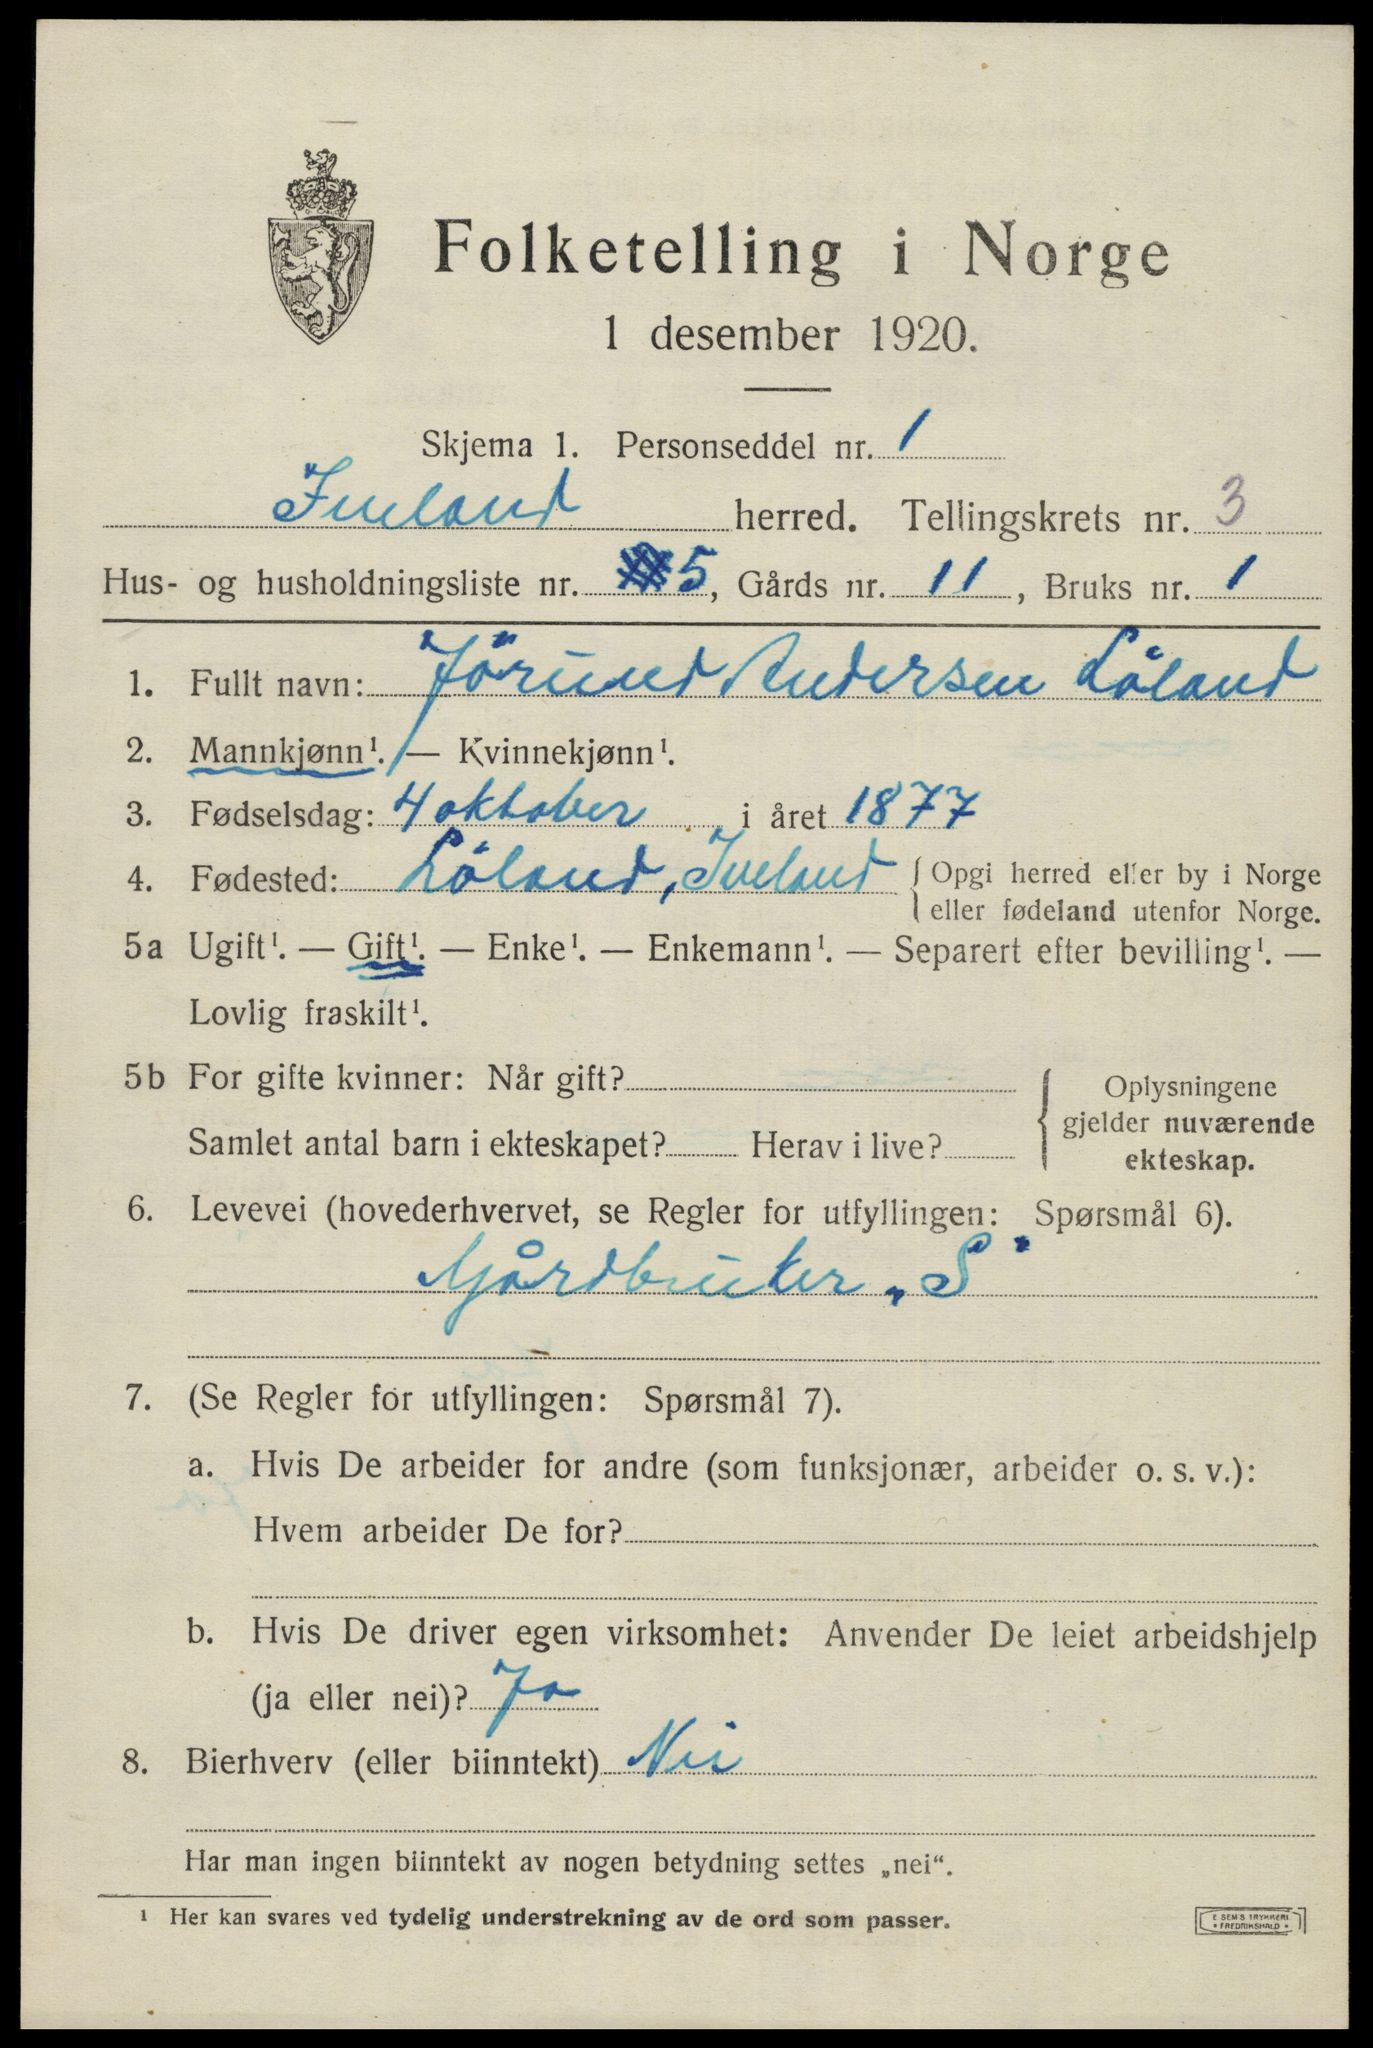 Folketelling i Norge
1 desember 1920.
Skjema 1. Personseddel nr. 1
Iveland herred. Tellingskrets nr. 3
Hus- og husholdningsliste nr. 5, Gårds nr. 11, Bruks nr. 1
1. Fullt navn: Jörund Andersen Löland
2. Mannkjønn¹. — Kvinnekjønn¹.
3. Fødselsdag: 4 oktober i året 1877
4. Fødested: Löland, Iveland { Opgi herred eller by i Norge
eller fødeland utenfor Norge.
5a Ugift¹. — Gift¹. — Enke¹. — Enkemann¹. — Separert efter bevilling¹. —
Lovlig fraskilt¹.
5b For gifte kvinner: Når gift?
Samlet antal barn i ekteskapet? Herav i live?
Oplysningene
gjelder nuværende
ekteskap.
6. Levevei (hovederhvervet, se Regler for utfyllingen: Spørsmål 6).
Gårdbruker „S"
7. (Se Regler for utfyllingen: Spørsmål 7).
a. Hvis De arbeider for andre (som funksjonær, arbeider o. s. v.):
Hvem arbeider De for?
b. Hvis De driver egen virksomhet: Anvender De leiet arbeidshjelp
(ja eller nei)? Ja
8. Bierhverv (eller biinntekt) Nei
Har man ingen biinntekt av nogen betydning settes „nei“.
¹ Her kan svares ved tydelig understrekning av de ord som passer.
E SEMS TRYKKERI
• FREDRIKSHALD •